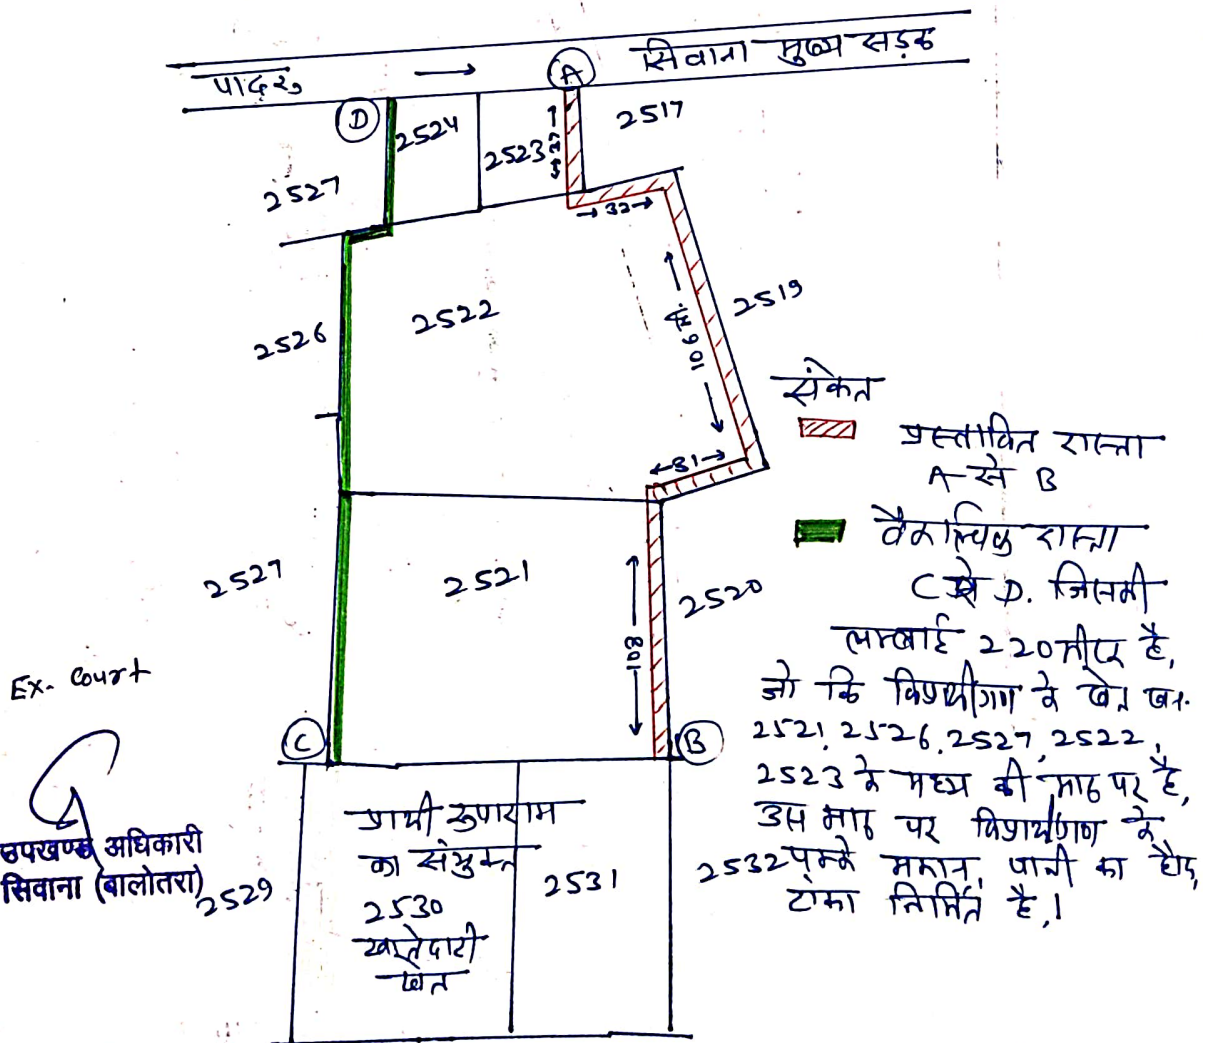 सिवाना मुख्य सड़क
पादरू
A
D
2524
2523
2517
2527
32
2519
2522
2526
106 मी.
31
संकेत
प्रस्तावित रास्ता
A से B
वैकल्पिक रास्ता
C से D. जिसकी
लम्बाई 220 मीटर है,
जो कि विप्रार्थीगण के खेत ख.न.
2521, 2526, 2527, 2522,
2523 के मध्य की माठ पर है,
उस माठ पर विप्रार्थीगण के
पक्के मकान, पानी का हौद,
टांका निर्मित है।
2527
2521
2520
108
Ex. Court
C
B
उपखण्ड अधिकारी
सिवाना (बालोतरा)
2529
प्रार्थी रुपाराम
का संयुक्त
2530
खातेदारी
खेत
2531
2532